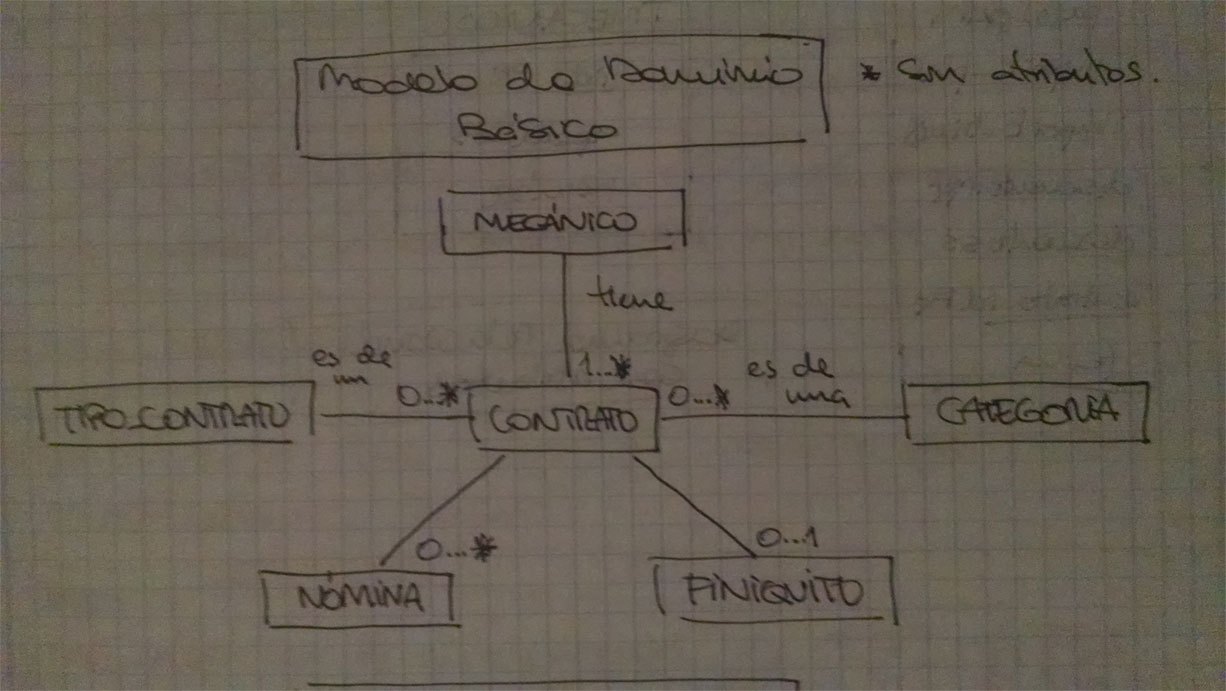 Modelo de Dominio
Básico
* Sin atributos.
MECÁNICO
tiene
1...*
es de
un
0...*
0...*
es de
una
TIPO_CONTRATO
CONTRATO
CATEGORÍA
0...*
0...1
NÓMINA
FINIQUITO